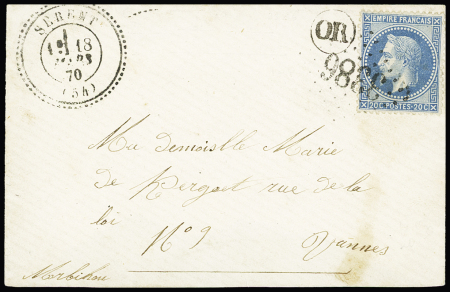 SERENT
18
MARS
70
(54)
OR
EMPIRE FRANÇAIS
20C POSTES 20C
Ma demoiselle Marie
de Kirgat rue de la
loi
N° 9 Vannes
Morbihan